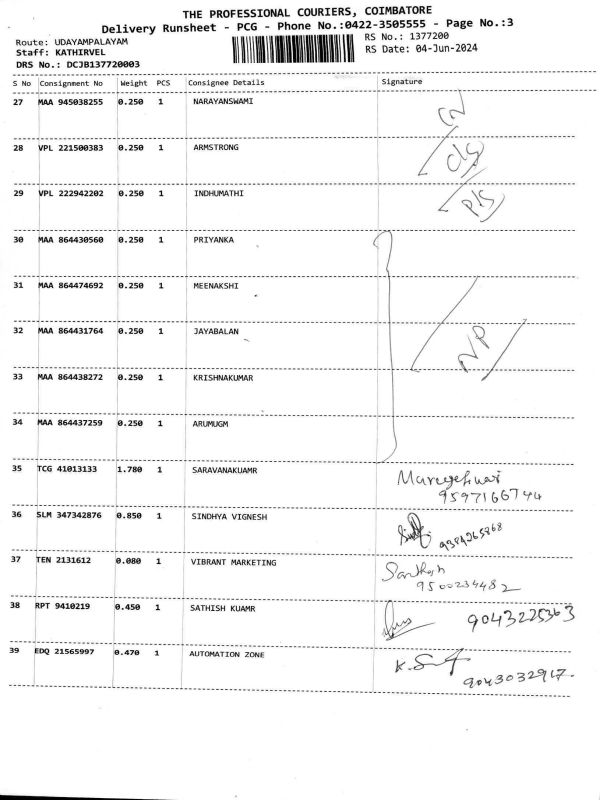 THE PROFESSIONAL COURIERS, COIMBATORE
Delivery Runsheet - PCG - Phone No.:0422-3505555 - Page No.:3
Route: UDAYAMPALAYAM
Staff: KATHIRVEL
DRS No.: DCJB137720003
RS No.: 1377200
RS Date: 04-Jun-2024
S No Consignment No Weight PCS Consignee Details Signature
27 MAA 945038255 0.250 1 NARAYANSWAMI
28 VPL 221500383 0.250 1 ARMSTRONG
29 VPL 222942202 0.250 1 INDHUMATHI
30 MAA 864430560 0.250 1 PRIYANKA
31 MAA 864474692 0.250 1 MEENAKSHI
32 MAA 864431764 0.250 1 JAYABALAN
NP
33 MAA 864438272 0.250 1 KRISHNAKUMAR
34 MAA 864437259 0.250 1 ARUMUGM
35 TCG 41013133 1.780 1 SARAVANAKUAMR
9597166744
36 SLM 347342876 0.850 1 SINDHYA VIGNESH
9384265868
37 TEN 2131612 0.080 1 VIBRANT MARKETING Santhosh
9500234482
38 RPT 9410219 0.450 1 SATHISH KUAMR 9043225363
39 EDQ 21565997 0.470 1 AUTOMATION ZONE
9043032917.